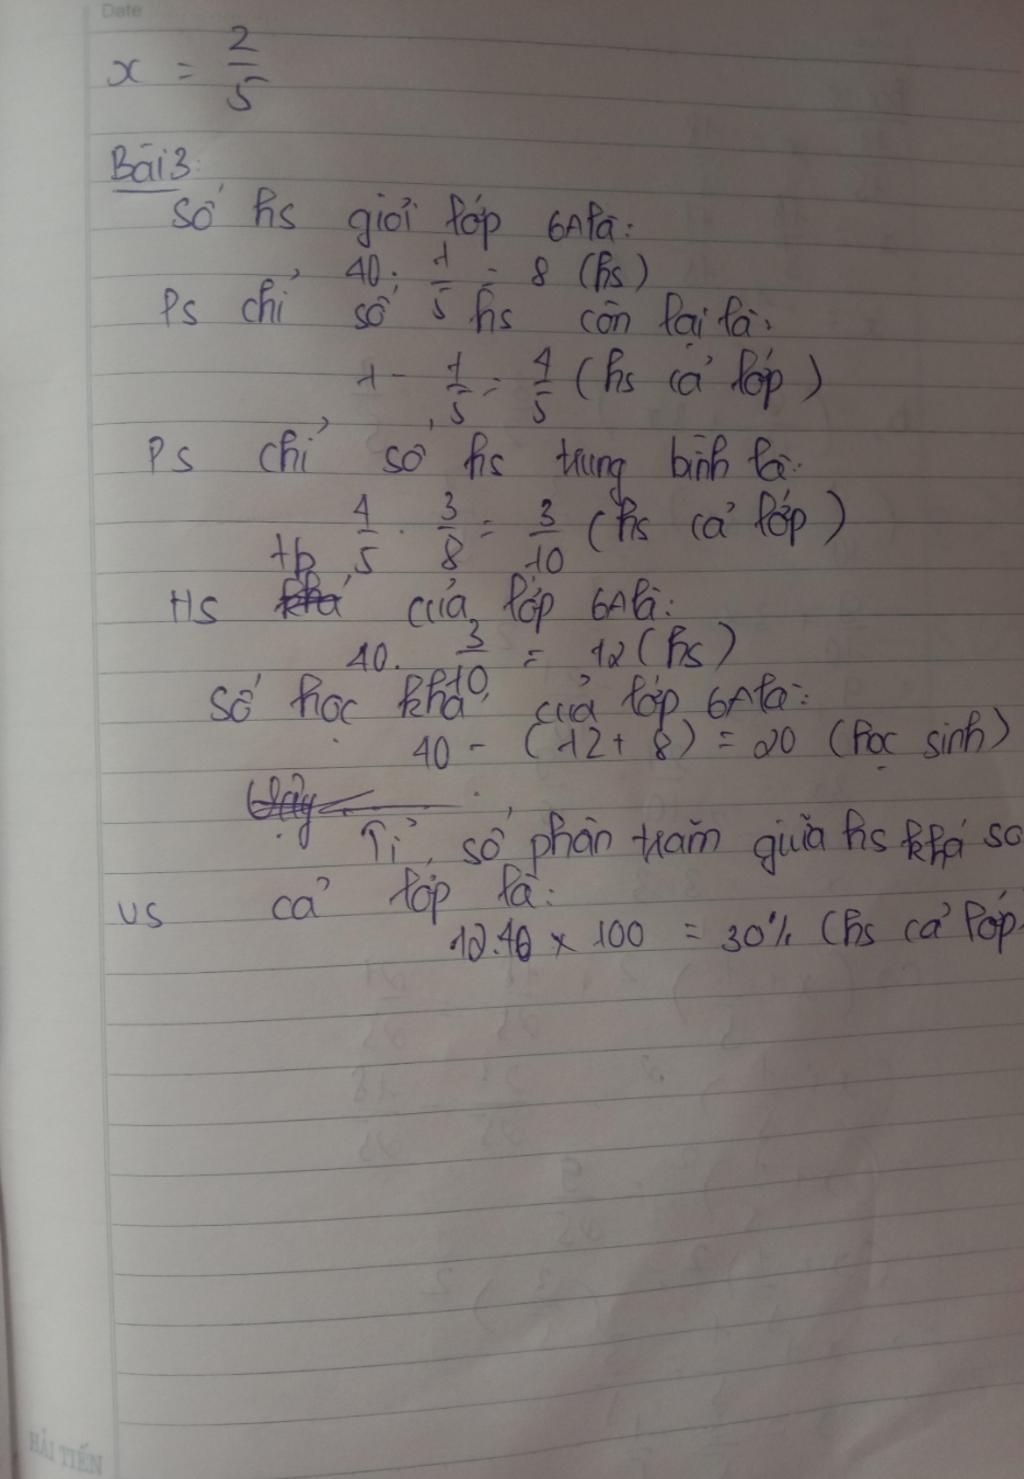 Date
x = 2/5
Bài 3:
Số hs giỏi lớp 6A là:
40 . 1/5 = 8 (hs)
Ps chỉ số hs còn lại là:
1 - 1/5 = 4/5 (hs cả lớp)
Ps chỉ số hs trung bình là:
4/5 . 3/8 = 3/10 (hs cả lớp)
tb
Hs khá của lớp 6A là:
40. 3/10 = 12 (hs)
Số học khá của lớp 6A là:
40 - (12 + 8) = 20 (học sinh)
Vậy
Tỉ số phần trăm giữa hs khá so
vs cả lớp là:
12:40 x 100 = 30% (hs cả lớp
HẢI TIẾN